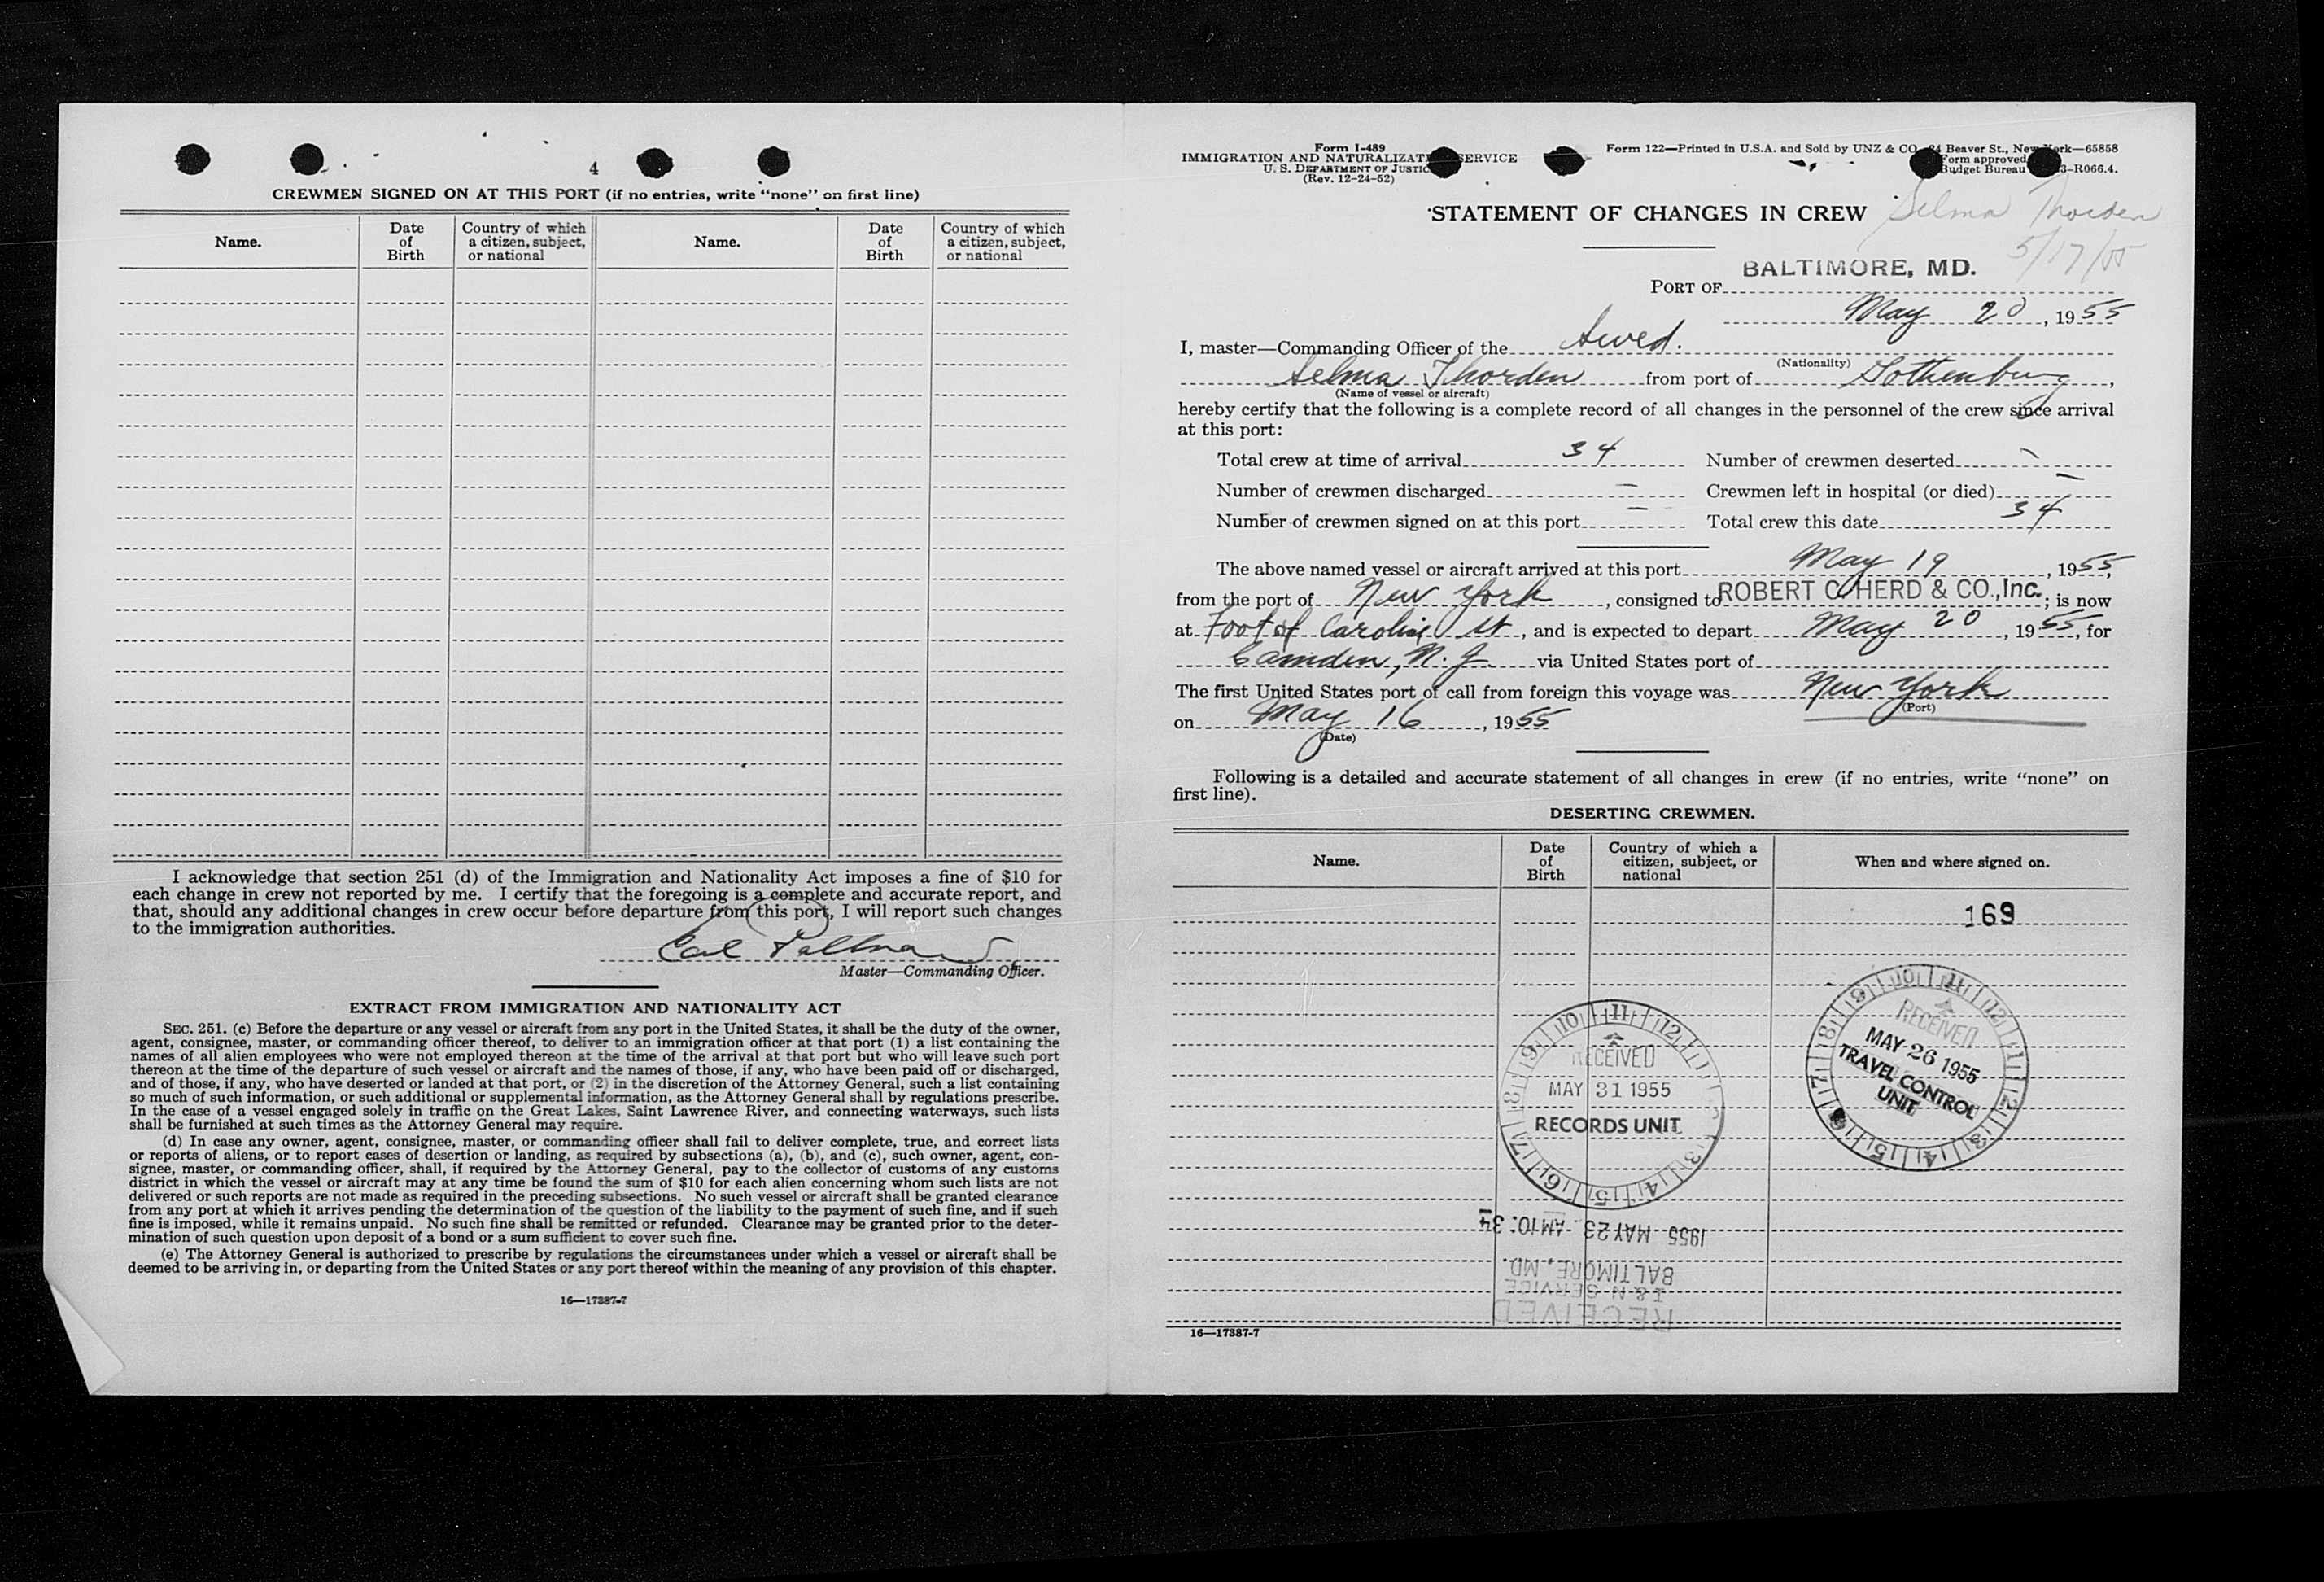 4
CREWMEN SIGNED ON AT THIS PORT (if no entries, write "none" on first line)
Name. Date of Birth Country of which a citizen, subject, or national Name. Date of Birth Country of which a citizen, subject, or national
I acknowledge that section 251 (d) of the Immigration and Nationality Act imposes a fine of $10 for
each change in crew not reported by me. I certify that the foregoing is a complete and accurate report, and
that, should any additional changes in crew occur before departure from this port, I will report such changes
to the immigration authorities.
Carl
Master—Commanding Officer.
EXTRACT FROM IMMIGRATION AND NATIONALITY ACT
SEC. 251. (c) Before the departure or any vessel or aircraft from any port in the United States, it shall be the duty of the owner,
agent, consignee, master, or commanding officer thereof, to deliver to an immigration officer at that port (1) a list containing the
names of all alien employees who were not employed thereon at the time of the arrival at that port but who will leave such port
thereon at the time of the departure of such vessel or aircraft and the names of those, if any, who have been paid off or discharged,
and of those, if any, who have deserted or landed at that port, or (2) in the discretion of the Attorney General, such a list containing
so much of such information, or such additional or supplemental information, as the Attorney General shall by regulations prescribe.
In the case of a vessel engaged solely in traffic on the Great Lakes, Saint Lawrence River, and connecting waterways, such lists
shall be furnished at such times as the Attorney General may require.
(d) In case any owner, agent, consignee, master, or commanding officer shall fail to deliver complete, true, and correct lists
or reports of aliens, or to report cases of desertion or landing, as required by subsections (a), (b), and (c), such owner, agent, con-
signee, master, or commanding officer, shall, if required by the Attorney General, pay to the collector of customs of any customs
district in which the vessel or aircraft may at any time be found the sum of $10 for each alien concerning whom such lists are not
delivered or such reports are not made as required in the preceding subsections. No such vessel or aircraft shall be granted clearance
from any port at which it arrives pending the determination of the question of the liability to the payment of such fine, and if such
fine is imposed, while it remains unpaid. No such fine shall be remitted or refunded. Clearance may be granted prior to the deter-
mination of such question upon deposit of a bond or a sum sufficient to cover such fine.
(e) The Attorney General is authorized to prescribe by regulations the circumstances under which a vessel or aircraft shall be
deemed to be arriving in, or departing from the United States or any port thereof within the meaning of any provision of this chapter.
16—17387-7
Form I-489
IMMIGRATION AND NATURALIZAT SERVICE
U. S. DEPARTMENT OF JUSTIC
(Rev. 12-24-52)
Form 122—Printed in U.S.A. and Sold by UNZ & CO 24 Beaver St., New York—65858
Form approved
Budget Bureau 3-R066.4.
STATEMENT OF CHANGES IN CREW
Selma Thorden
5/17/55
BALTIMORE, MD.
PORT OF
May 20, 1955
I, master—Commanding Officer of the Swed.
(Nationality)
Selma Thorden from port of Gothenburg,
(Name of vessel or aircraft)
hereby certify that the following is a complete record of all changes in the personnel of the crew since arrival
at this port:
Total crew at time of arrival 34 Number of crewmen deserted -
Number of crewmen discharged - Crewmen left in hospital (or died) -
Number of crewmen signed on at this port - Total crew this date 34
The above named vessel or aircraft arrived at this port May 19, 1955,
from the port of New York, consigned to ROBERT C HERD & CO., Inc.; is now
at Foot of Caroline St, and is expected to depart May 20, 1955, for
Camden, N.J. via United States port of
The first United States port of call from foreign this voyage was New York
(Port)
on May 16, 1955
(Date)
Following is a detailed and accurate statement of all changes in crew (if no entries, write "none" on
first line).
DESERTING CREWMEN.
Name. Date of Birth Country of which a citizen, subject, or national When and where signed on.
169
RECEIVED
MAY 26 1955
TRAVEL CONTROL
UNIT
RECEIVED
MAY 31 1955
RECORDS UNIT
1955 MAY 23 AM 10:34
BALTIMORE, MD.
I & N SERVICE
RECEIVED
16—17387-7